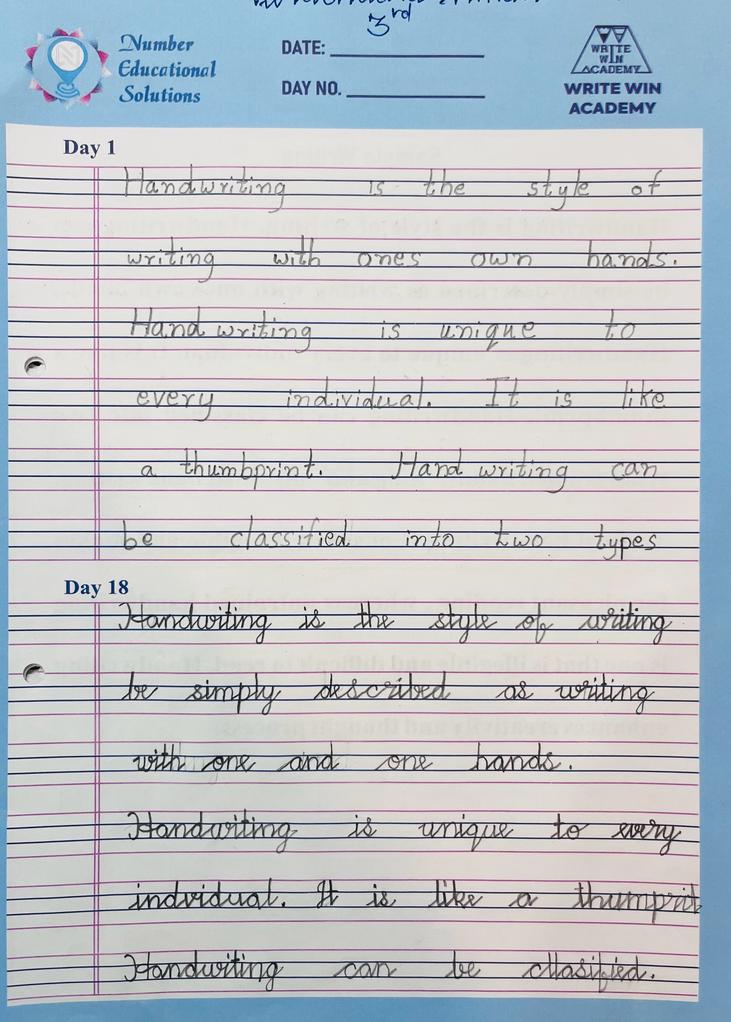 3rd
Number
Educational
Solutions
DATE:
DAY NO.
WRITE
WIN
ACADEMY
WRITE WIN
ACADEMY
Day 1
Handwriting is the style of
writing with ones own hands.
Hand writing is unique to
every individual. It is like
a thumbprint. Hand writing can
be classified into two types
Day 18
Handwiting is the style of writing
be simply described as writing
with one and one hands.
Handwiting is unique to every
indvidual. It is like a thumprit
Handwiting can be cllasified.